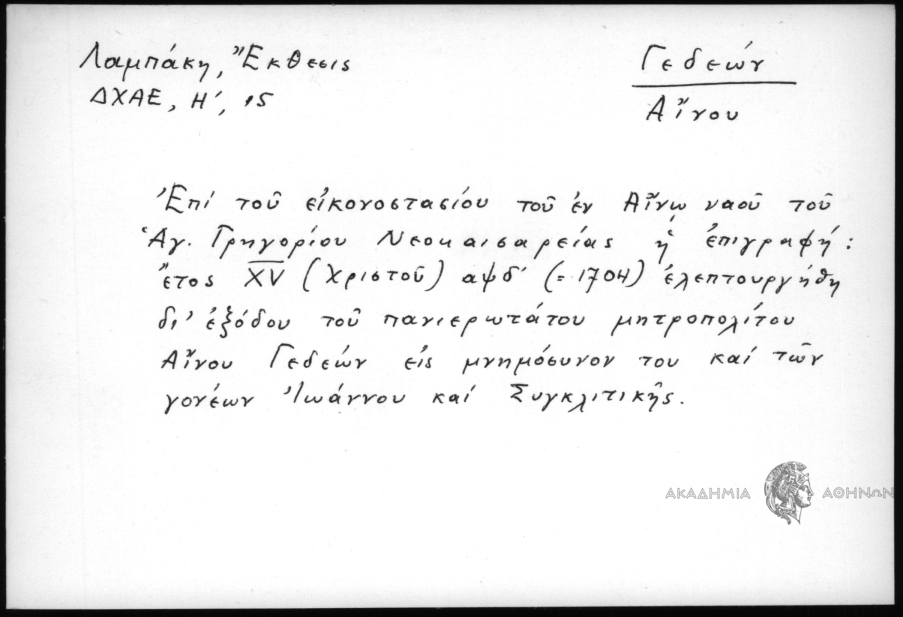 Λαμπάκη, Ἔκθεσις
ΔΧΑΕ, Η', 15
Γεδεών
Αἴνου
Ἐπί τοῦ εἰκονοστασίου τοῦ ἐν Αἴνῳ ναοῦ τοῦ
Ἁγ. Γρηγορίου Νεοκαισαρείας ἡ ἐπιγραφή:
ἔτος X̅V̅ (Χριστοῦ) αψδ' (= 1704) ἐλεπτουργήθη
δι' ἐξόδου τοῦ πανιερωτάτου μητροπολίτου
Αἴνου Γεδεών εἰς μνημόσυνον του καί τῶν
γονέων Ἰωάννου καί Συγκλιτικῆς.
ΑΚΑΔΗΜΙΑ ΑΘΗΝΩΝ